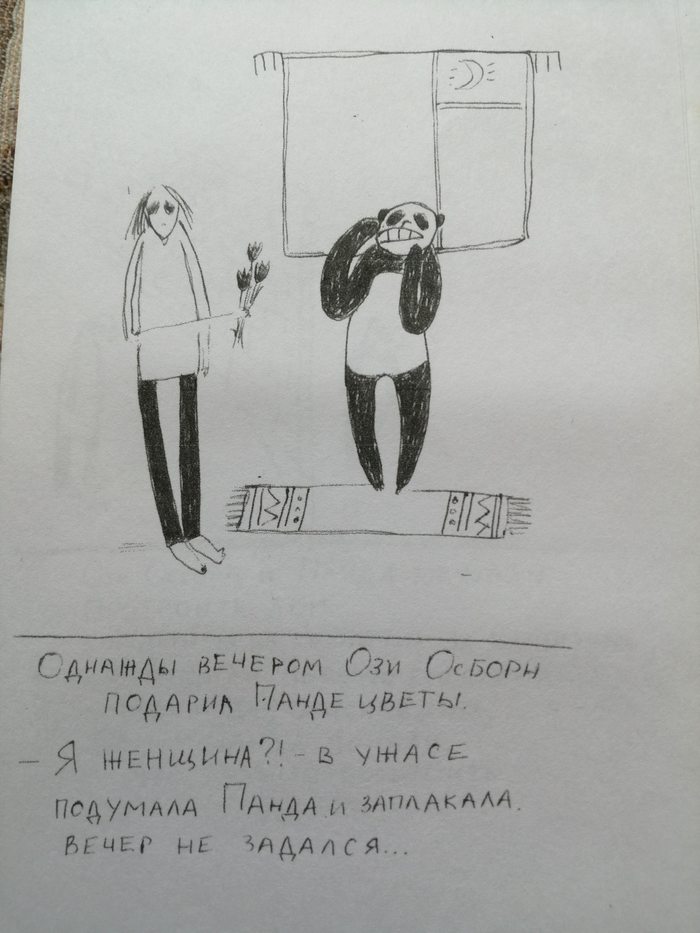 Однажды вечером Ози Осборн
подарил Панде цветы.
– Я женщина?! – в ужасе
подумала Панда и заплакала.
Вечер не задался...